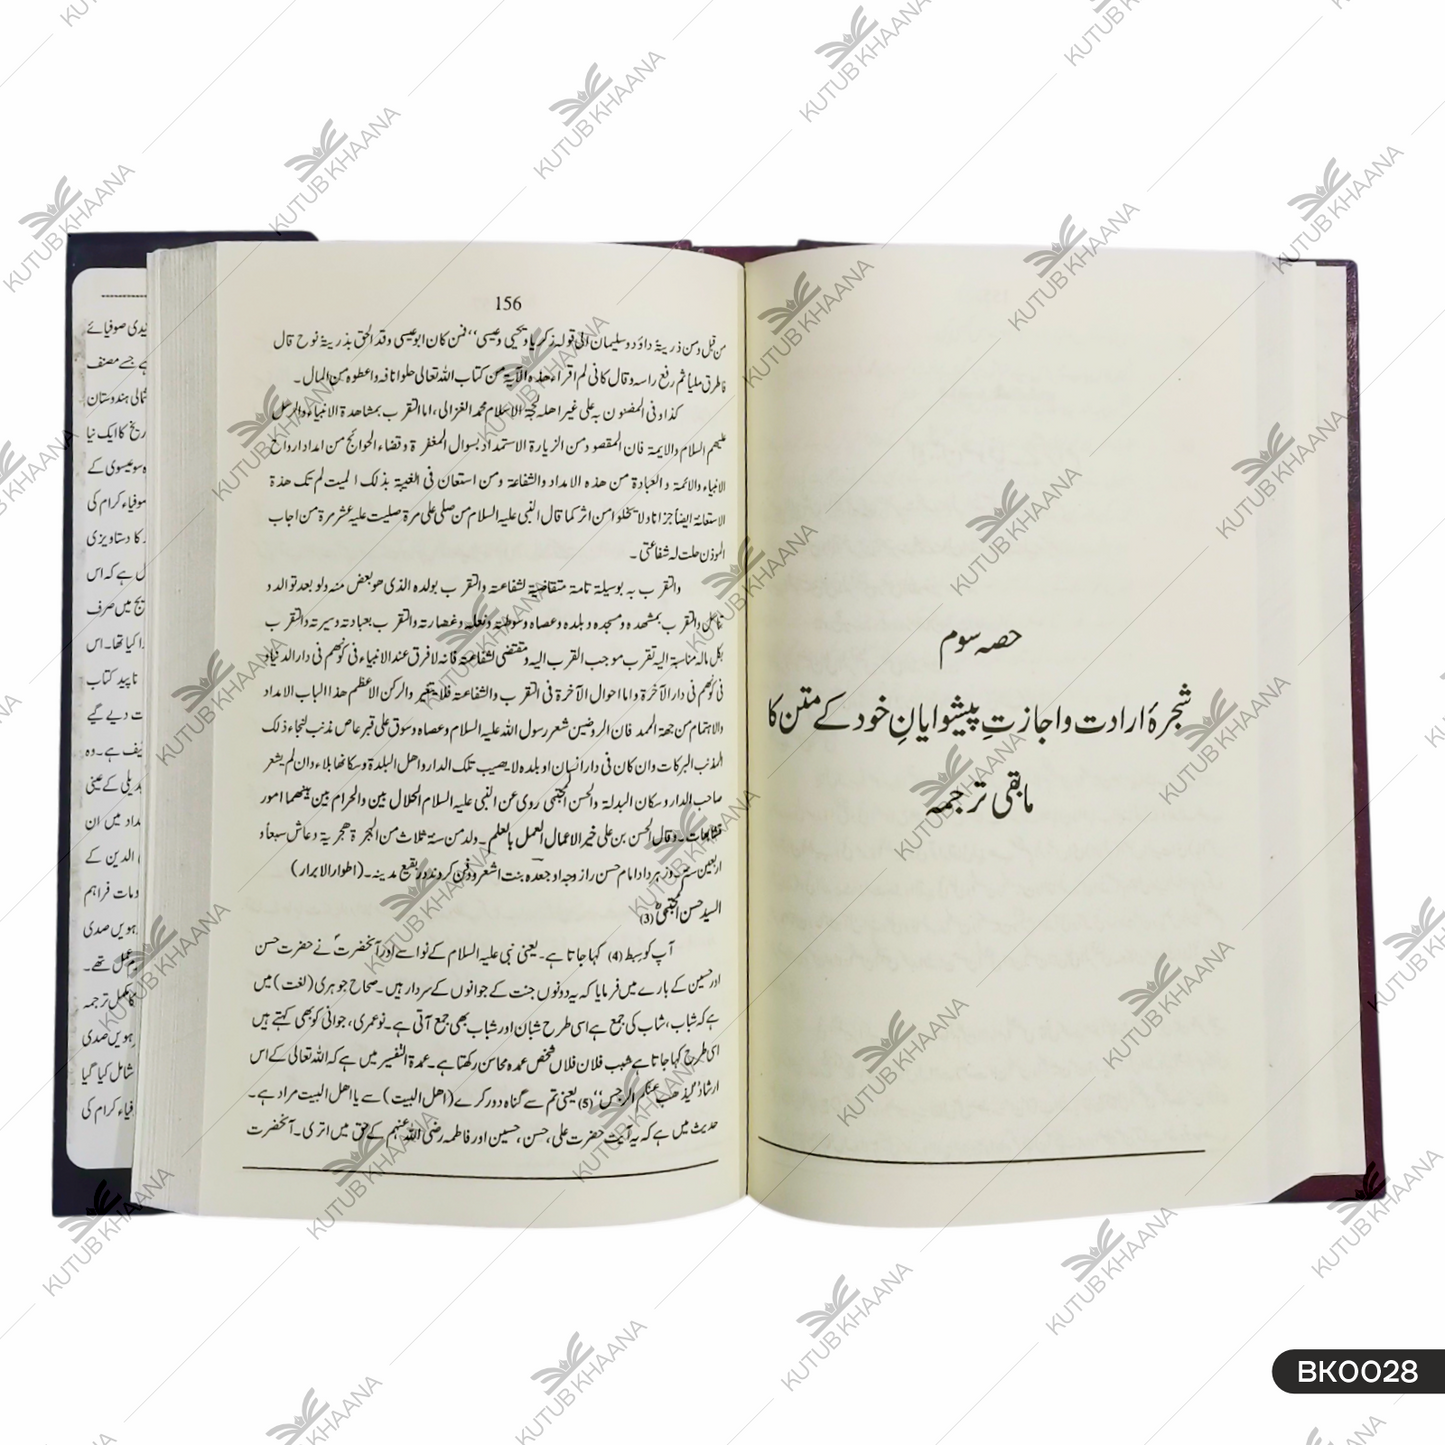 156
من قبل ومن ذریۃ داؤد وسلیمان الی قولہ زکریا ویحیی وعیسی‘‘ فمن کان ابو عیسی وقد الحق بذریۃ نوح قال
فاطرق ملیا ثم رفع راسہ وقال کانی لم اقراء ھذہ الآیۃ من کتاب اللہ تعالی حلوانا فہ واعطوہ من المال۔
کذا فی المضنون بہ علی غیر اھلہ لحجۃ الاسلام محمد الغزالی، اما التقرب بمشاھدۃ الانبیاء والرسل
علیھم السلام والایمۃ فان المقصود من الزیارۃ الاستمداد بسوال المغفرۃ وقضاء الحوائج من امداد ارواح
الانبیاء والائمۃ والعبادۃ من ھذہ الامداد والشفاعۃ ومن استعان فی الغیبۃ بذلک المیت لم تک ھذۃ
الاستعانۃ ایضاً جزافا ولا یخلوا من اثر کما قال النبی علیہ السلام من صلی علی مرۃ صلیت علیہ عشر مرۃ من اجاب
الموذن حلت لہ شفاعتی۔
والتقرب بہ بوسیلۃ تامۃ متقاضیۃ لشفاعتہ والتقرب بولدہ الذی ھو بعض منہ ولو بعد توالد و
تناسل والتقرب بمشھدہ ومسجدہ وبلدہ وعصاہ وسوطتہ ونعلہ وغصارتہ والتقرب بعبادتہ وسیرتہ والتقرب
بکل مالہ مناسبۃ الیہ تقرب موجب القرب الیہ ومقتضی لشفاعتہ فانہ لا فرق عند الانبیاء فی کونھم فی دار الدنیا و
فی کونھم فی دار الآخرۃ واما احوال الآخرۃ فی التقرب والشفاعتہ فلا یتغیر والرکن الاعظم ھذا الباب الامداد
والاھتمام من جھۃ الممد فان الروضین شعر رسول اللہ علیہ السلام وعصاہ وسوق علی قبر عاص مذنب لنجاء ذلک
المذنب البرکات وان کان فی دار انسان او بلدہ لا یصیب تلک الدار واھل البلدۃ وسکانھا بلاء وان لم یشعر
صاحب الدار وسکان البدلۃ والحسن المجتبی روی عن النبی علیہ السلام الحلال بین والحرام بین بینھما امور
متشابھات۔ وقال الحسن بن علی خیر الاعمال العمل بالعلم۔ ولد من سنۃ ثلاث من الھجرۃ ھجریۃ وعاش سبعاً و
اربعین زہر داد امام حسن را زوجہ او جعدہ بنت اشعر ودفن کردند در بقیع مدینہ۔ (اطوار الابرار)
السید حسن المجتبیؓ (3)
آپ کو سِبط (4) کہا جاتا ہے۔ یعنی نبی علیہ السلام کے نواسے اور آنحضرتؐ نے حضرت حسن
اور حسین کے بارے میں فرمایا کہ یہ دونوں جنت کے جوانوں کے سردار ہیں۔ صحاح جوہری (لغت) میں
ہے کہ شباب، شاب کی جمع ہے اسی طرح شبان اور شباب بھی جمع آتی ہے۔ نوعمری، جوانی کو بھی کہتے ہیں
اسی طرح کہا جاتا ہے شبب فلان فلاں شخص عمدہ محاسن رکھتا ہے۔ عمدۃ التفسیر میں ہے کہ اللہ تعالیٰ کے اس
ارشاد ’’لیذھب عنکم الرجس‘‘ (5) یعنی تم سے گناہ دور کرے (اھل البیت) سے یا اھل البیت مراد ہے۔
حدیث میں ہے کہ یہ آیت حضرت علی، حسن، حسین اور فاطمہ رضی اللہ عنہم کے حق میں اتری۔ آنحضرت
حصہ سوم
شجرۂ ارادت واجازتِ پیشوایانِ خود کے متن کا
مابقی ترجمہ
صوفیائے
ہے جسے مصنف
شمالی ہندوستان
کا ایک نیا
سو عیسوی کے
صوفیاء کرام کی
کا دستاویزی
ہے کہ اس
میں صرف
کیا تھا۔ اس
ناپید کتاب
دیے گئے
ہے۔ وہ
تبدیلی کے عینی
میں ان
الدین کے
فراہم
صدی
تھے۔
مکمل ترجمہ
صدی
شامل کیا گیا
کرام کی
KUTUB KHAANA
BK0028